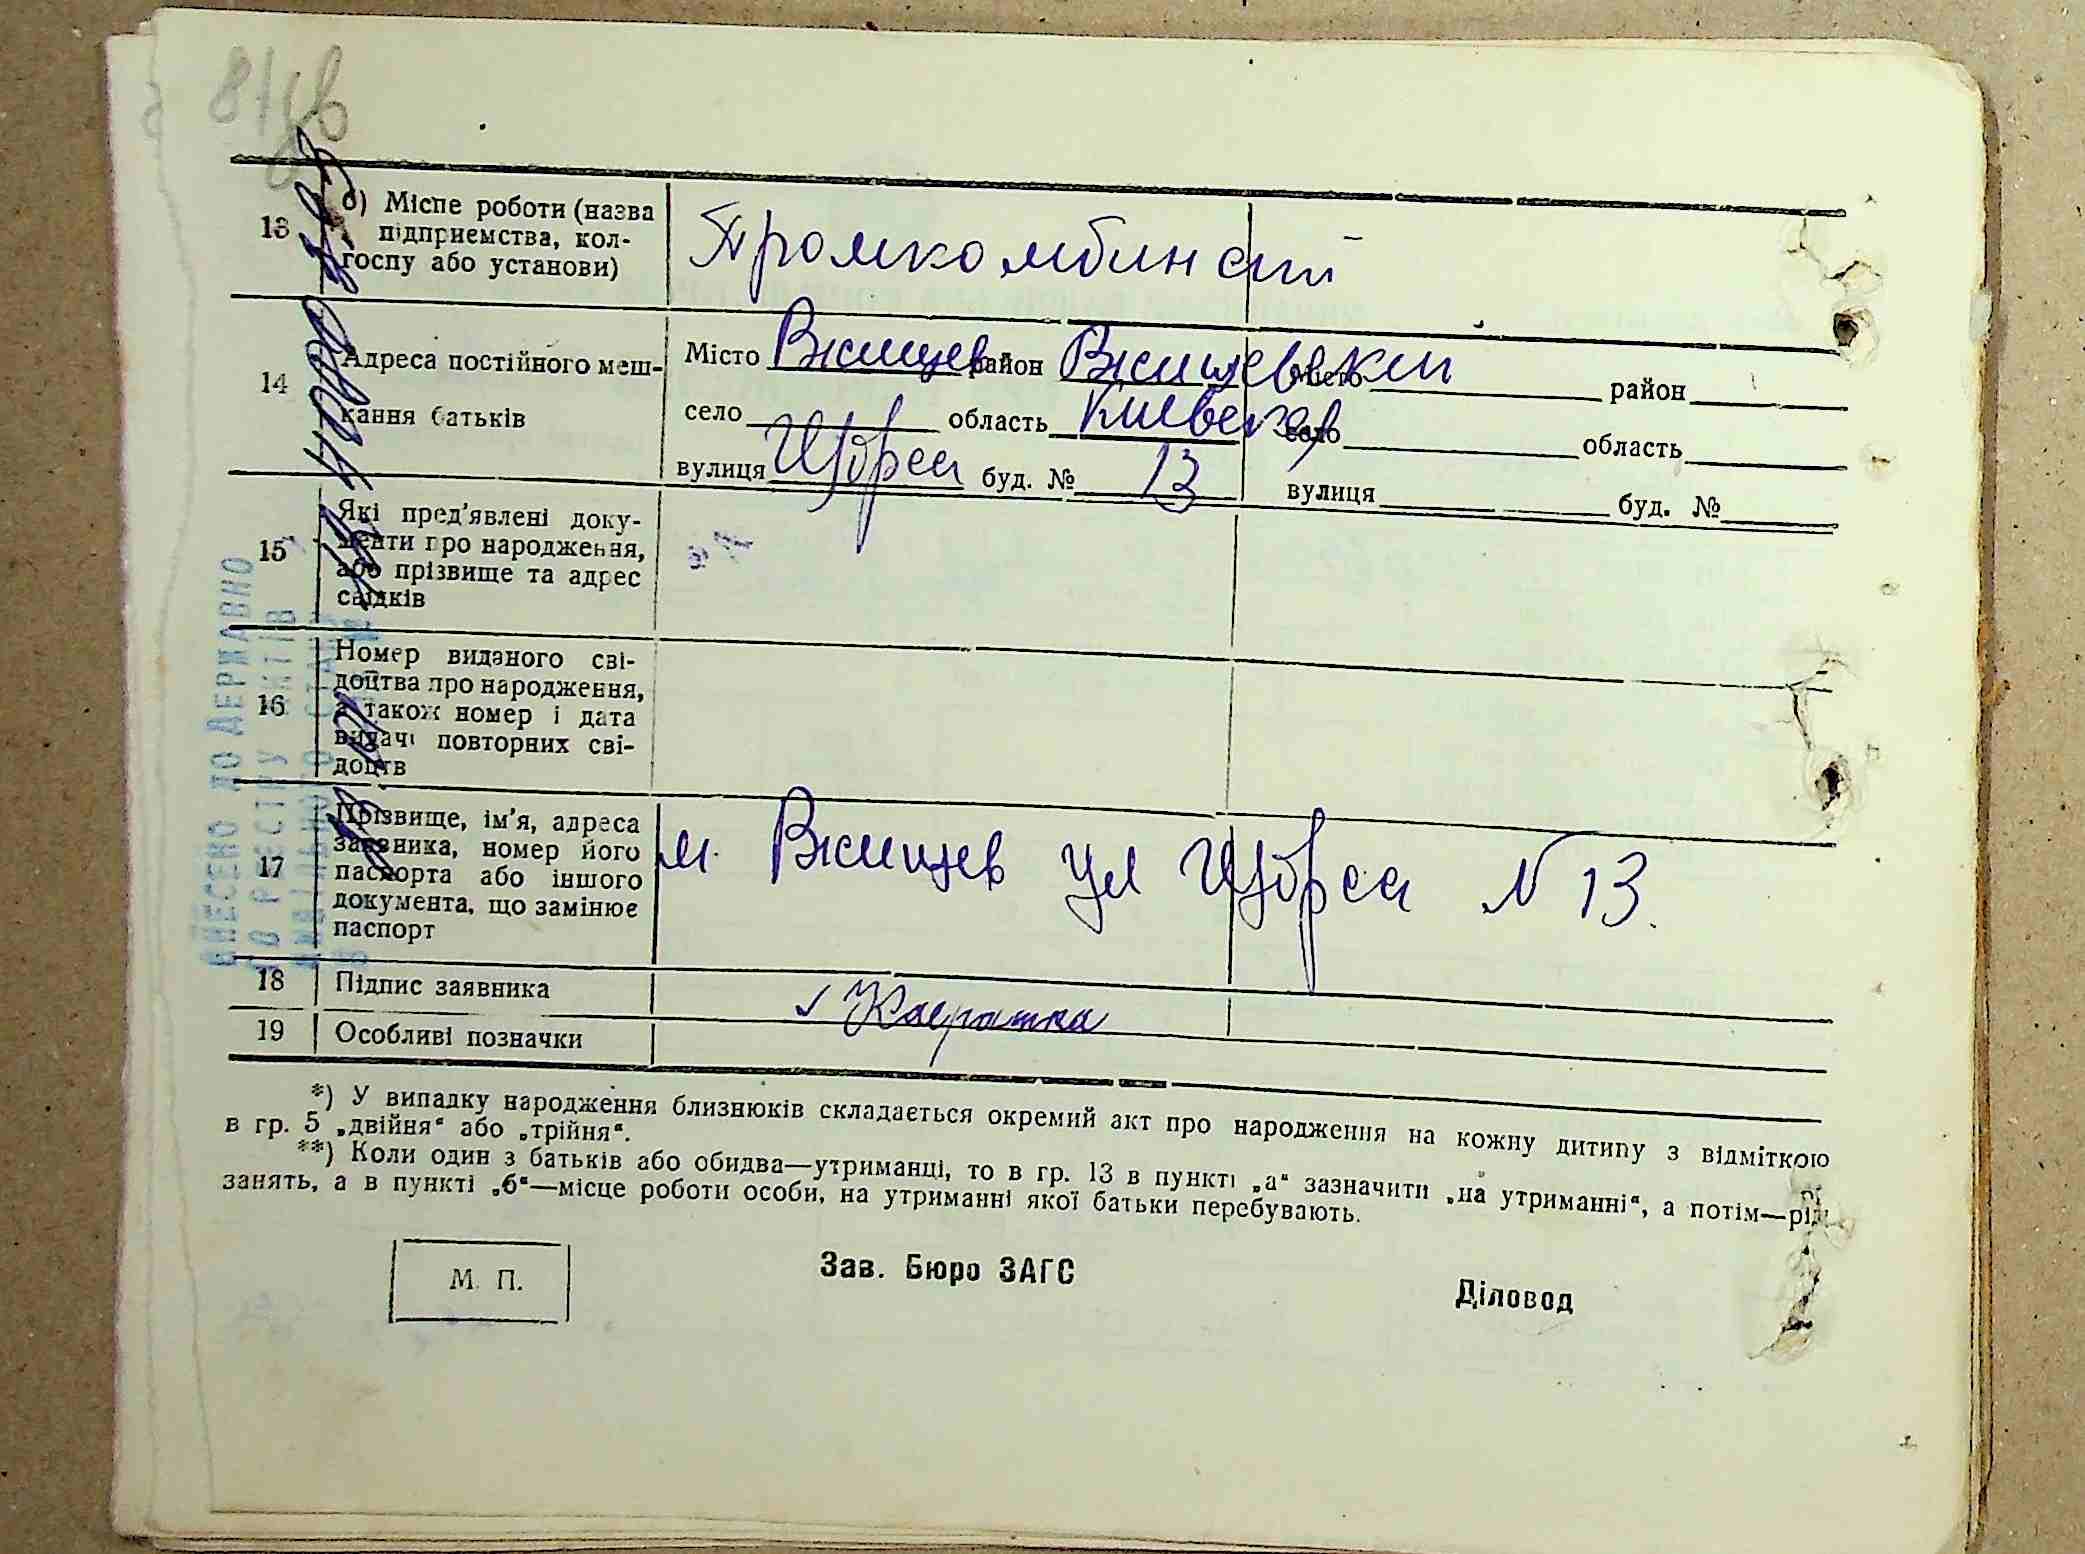 81зв
13
б) Місце роботи (назва
підприємства, кол-
госпу або установи)
Промкомбинат
14
Адреса постійного меш-
кання батьків
Місто Ржищев район Ржищевский
Місто район
село область Киевская
село область
вулиця Щорса буд. № 13
вулиця буд. №
15
Які пред'явлені доку-
менти про народження,
або прізвище та адрес
свідків
16
Номер виданого сві-
доцтва про народження,
а також номер і дата
видачі повторних сві-
доцтв
17
Прізвище, ім'я, адреса
заявника, номер його
паспорта або іншого
документа, що замінює
паспорт
м. Ржищев ул Щорса N 13.
18 Підпис заявника
19 Особливі позначки
ВНЕСЕНО ДО ДЕРЖАВНО
ГО РЕЄСТРУ АКТІВ
ЦИВІЛЬНОГО СТАНУ
*) У випадку народження близнюків складається окремий акт про народження на кожну дитину з відміткою
в гр. 5 „двійня“ або „трійня“.
**) Коли один з батьків або обидва—утриманці, то в гр. 13 в пункті „а“ зазначити „на утриманні“, а потім—рід
занять, а в пункті „б“—місце роботи особи, на утриманні якої батьки перебувають.
М. П.
Зав. Бюро ЗАГС
Діловод